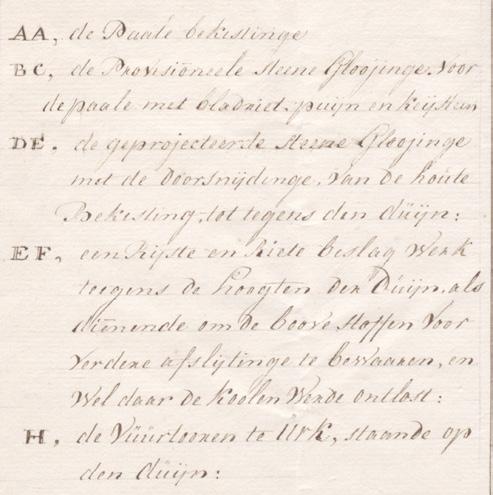 AA, de Paale bekistinge
BC, de Provisioneele steene Gloojinge voor
de paale met bladriet, puijn en keijsteen
DE. de geprojecteerde steene Gloojinge
met de Doorsnijdinge, van de houte
Bekisting, tot tegens den düijn:
EF, een Rijste en Riete beslag Werk
teegens de hoogten der Düijn, als
diënende om de boove stoffen Voor
Verdere afslijtinge te bewaaren, en
Wel daar de koolen Werde ontlost:
H, de Vüürtooren te Urk, staande op
den düijn: